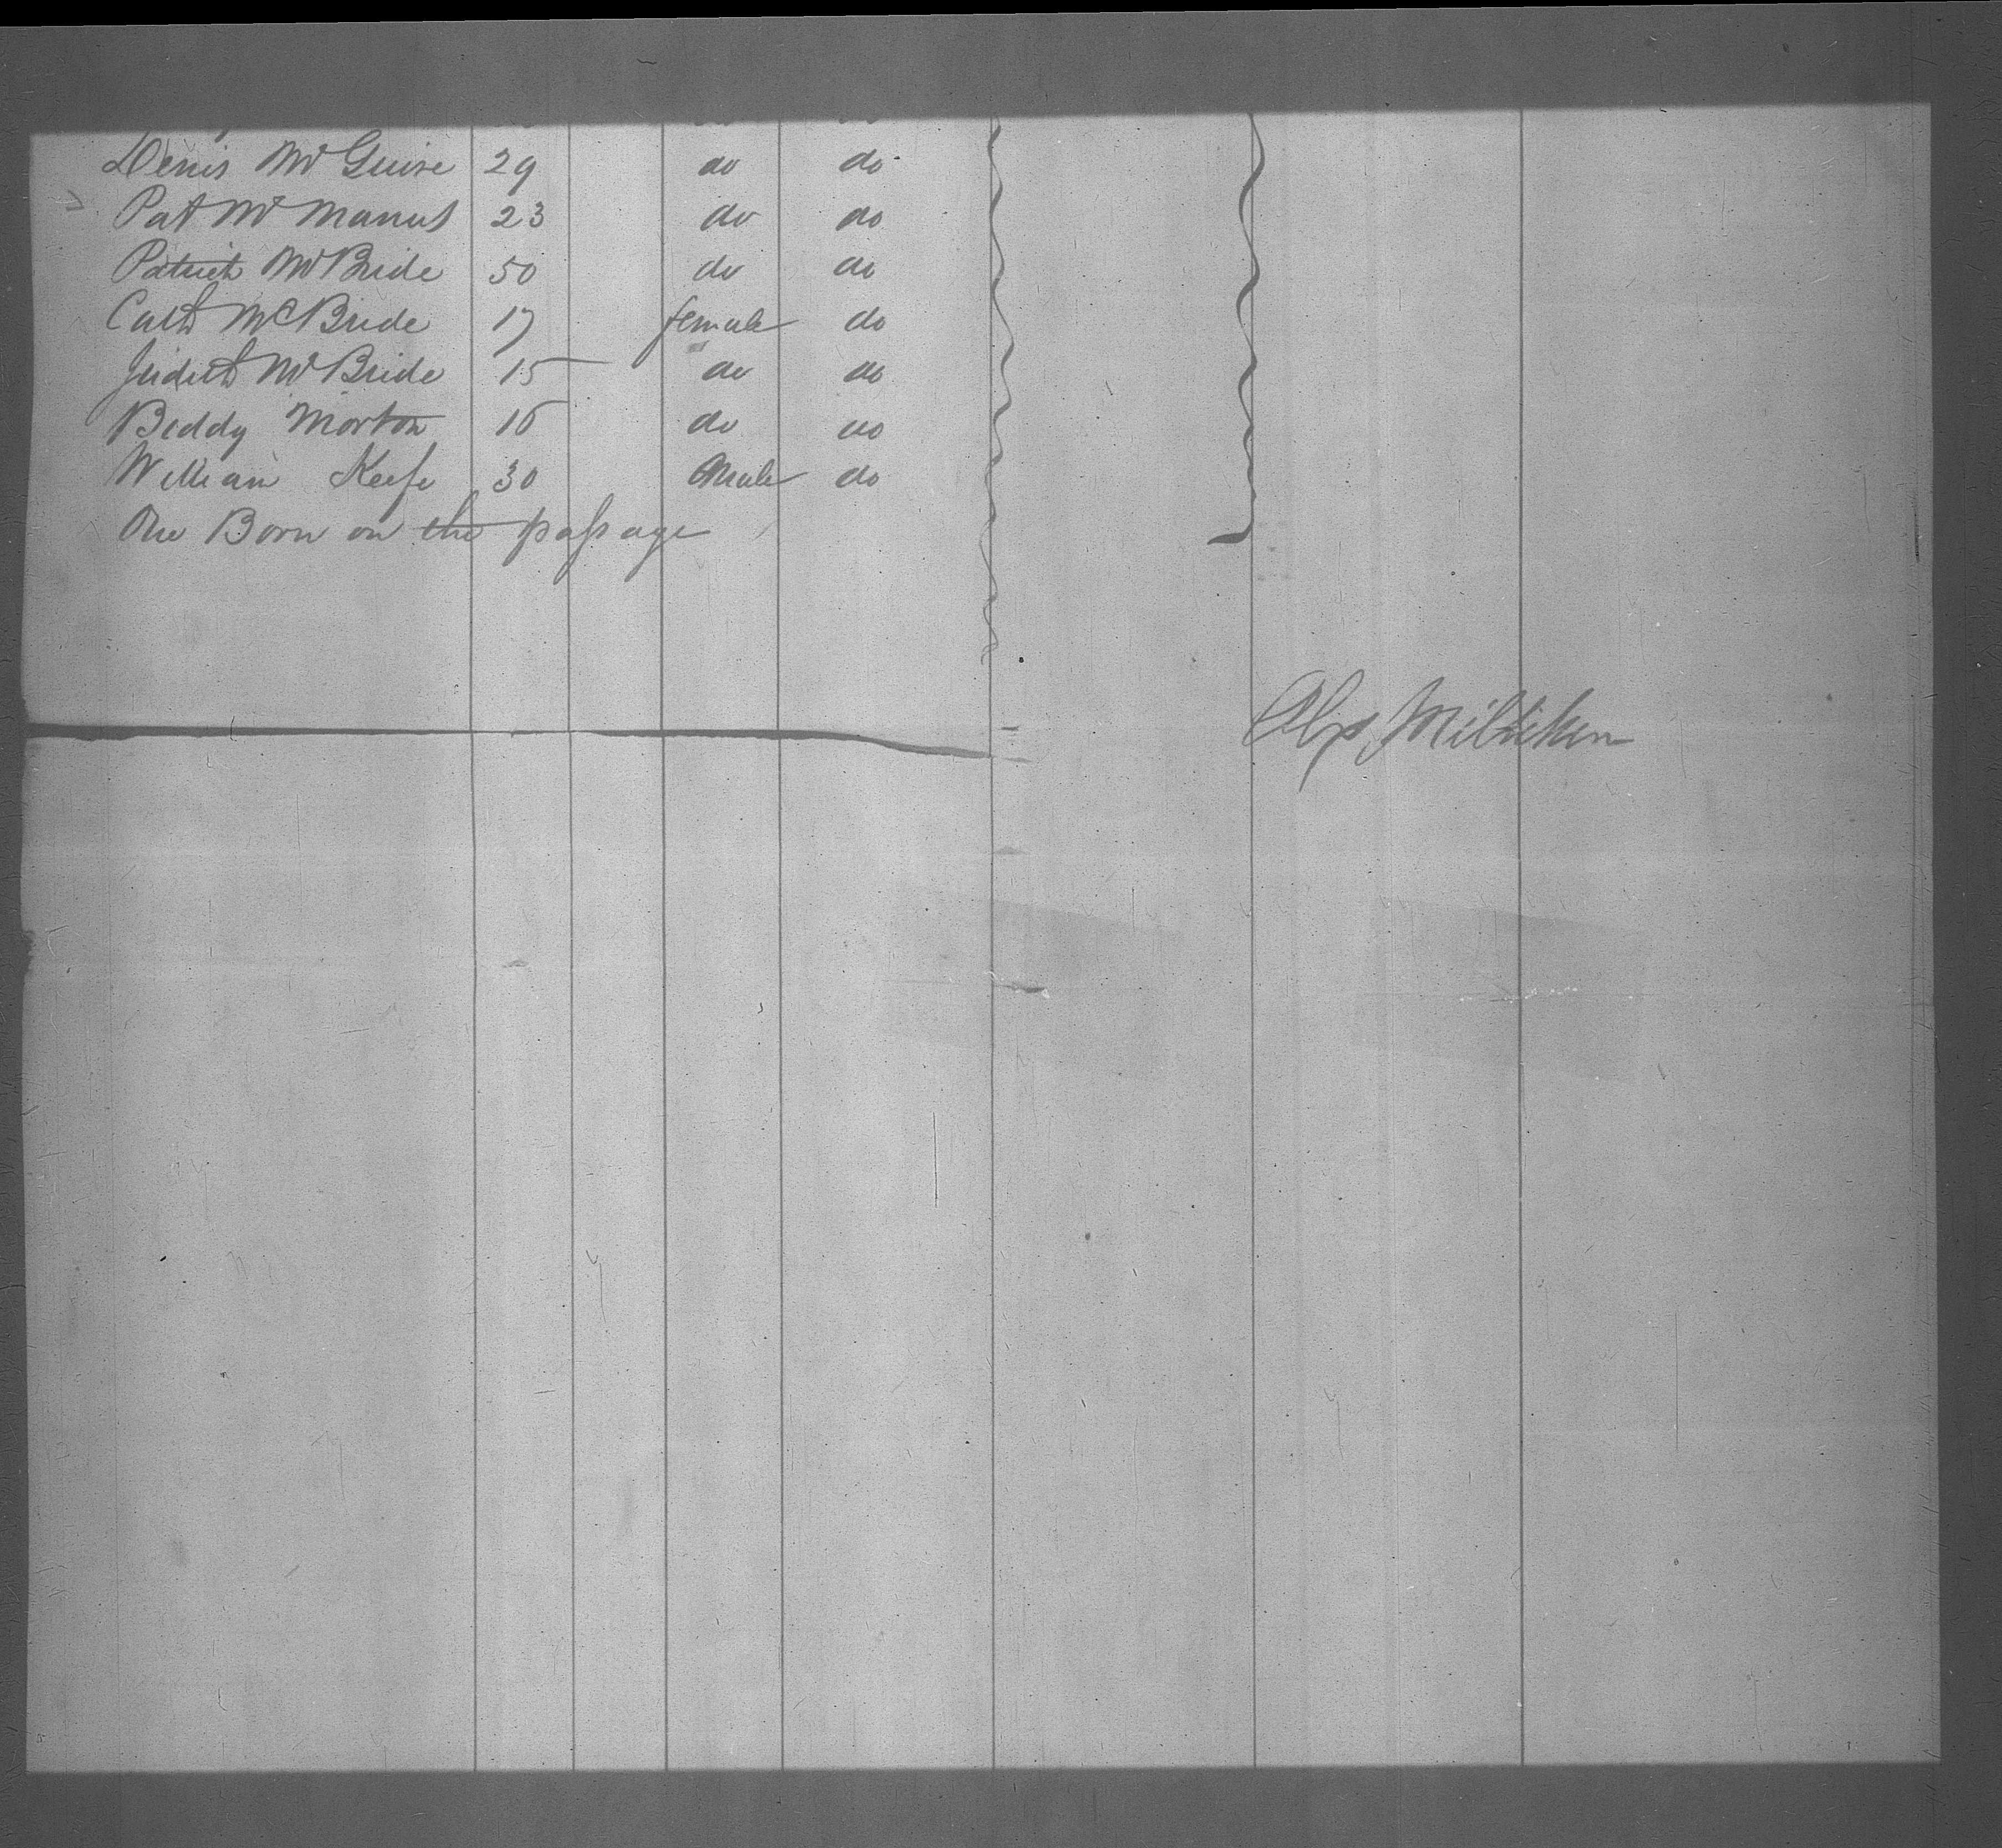 Denis McGuire 29 do do
Pat McManus 23 do do
Patrick McBride 50 do do
Cath McBride 17 female do
Judith McBride 15 do do
Biddy Morton 16 do do
William Keefe 30 Male do
One Born on the passage
Alex Milliken